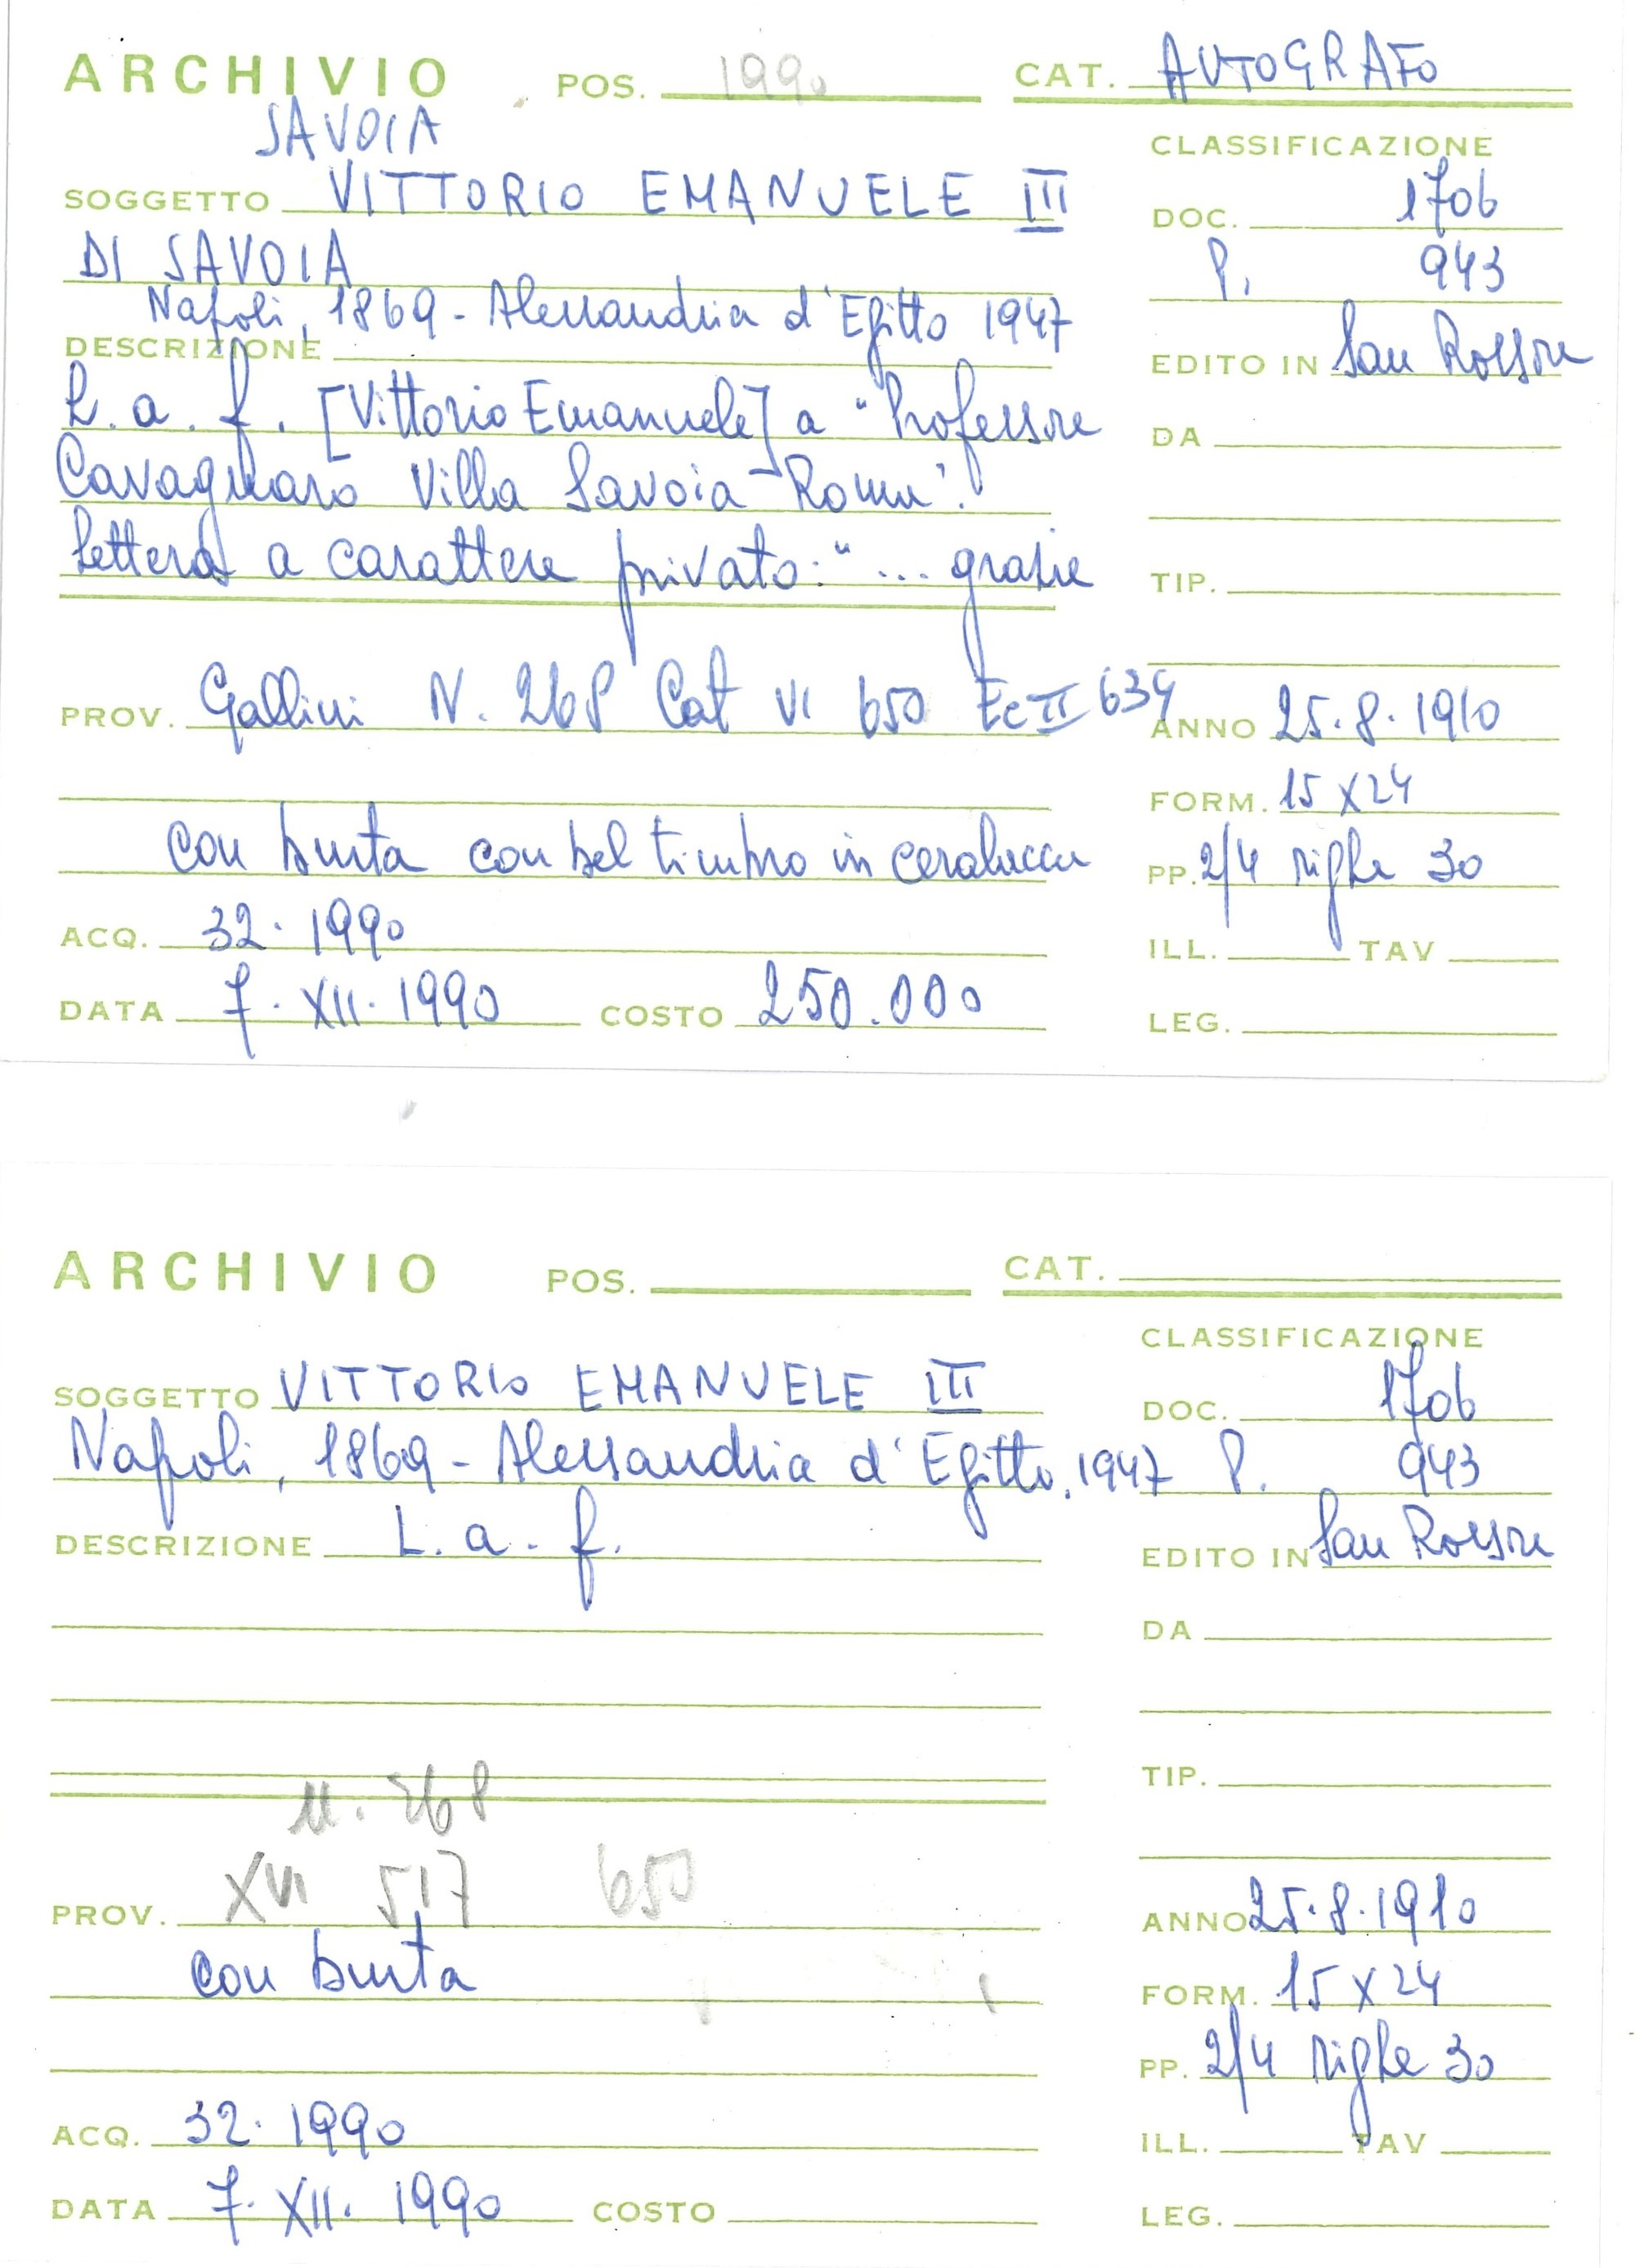 ARCHIVIO POS. 1990 CAT. AUTOGRAFO
SAVOIA
CLASSIFICAZIONE
SOGGETTO VITTORIO EMANUELE III
DOC. 1706
DI SAVOIA
P. 943
Napoli, 1869 - Alessandria d'Egitto 1947
DESCRIZIONE
EDITO IN San Rossore
L. a. f. [Vittorio Emanuele] a "Professore
DA
Cavagnaro Villa Savoia Roma".
Lettera a carattere privato: "... grazie
TIP.
PROV. Gallini N. 268 Cat VI 650 Ec II 634
ANNO 25.8.1910
FORM. 15 x 24
con busta con bel timbro in ceralacca
PP. 2/4 righe 30
ACQ. 32. 1990
ILL. TAV
DATA 7. XII. 1990 COSTO 250.000
LEG.
ARCHIVIO POS. CAT.
CLASSIFICAZIONE
SOGGETTO VITTORIO EMANUELE III
DOC. 1706
Napoli, 1869 - Alessandria d'Egitto, 1947
P. 943
DESCRIZIONE L. a. f.
EDITO IN San Rossore
DA
TIP.
n. 268
PROV. XVI 517 650
ANNO 25.8.1910
con busta
FORM. 15 x 24
PP. 2/4 righe 30
ACQ. 32. 1990
ILL. TAV
DATA 7. XII. 1990 COSTO
LEG.